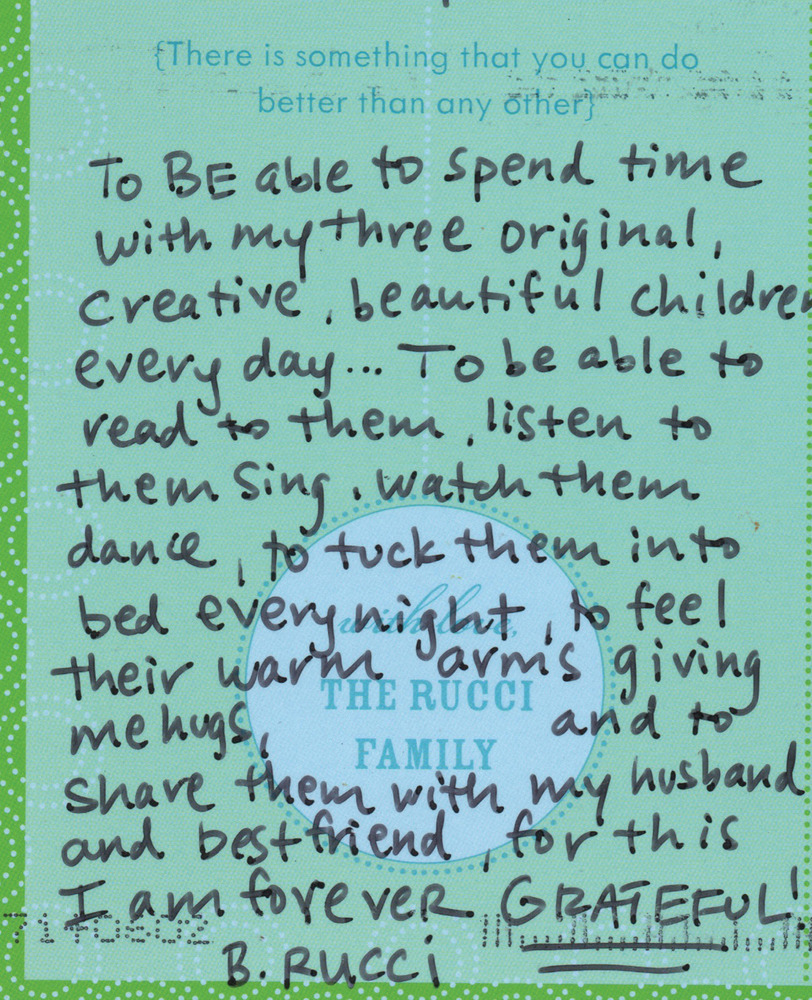 {There is something that you can do
better than any other}
To BE able to spend time
with my three original,
creative, beautiful children
every day... To be able to
read to them, listen to
them sing, watch them
dance, to tuck them into
bed every night, to feel
with love,
their warm arms giving
THE RUCCI
me hugs, and to
FAMILY
share them with my husband
and best friend, for this
I am forever GRATEFUL!
B. RUCCI